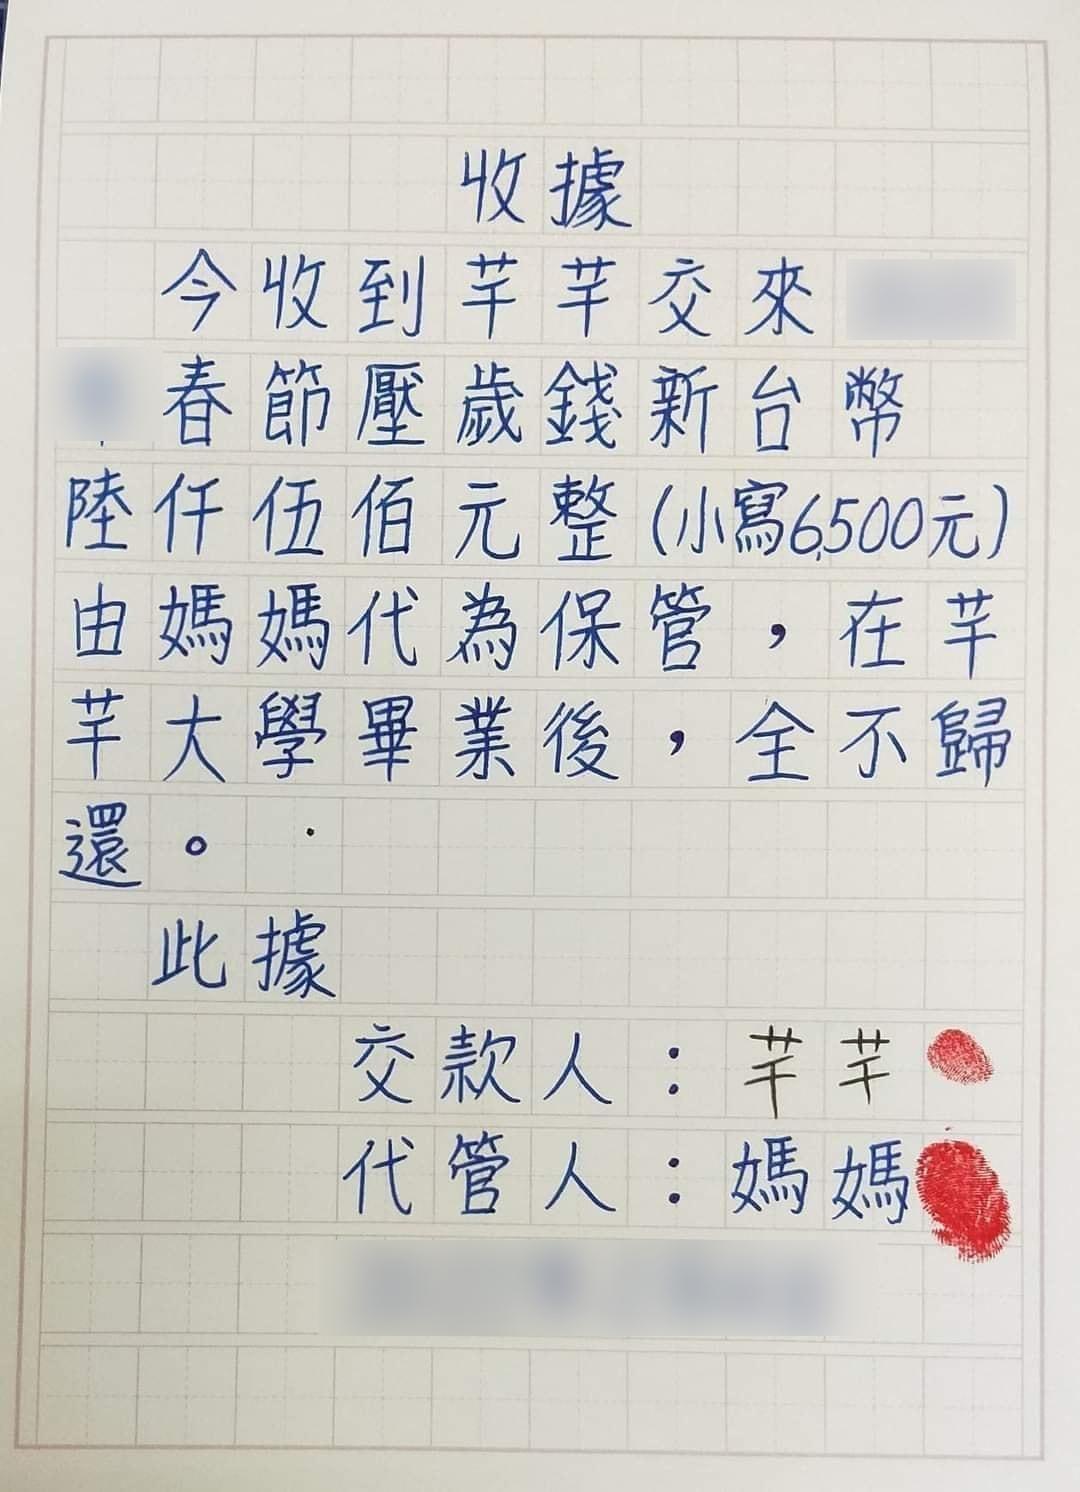 收據
今收到芊芊交來
春節壓歲錢新台幣
陸仟伍佰元整(小寫6,500元)
由媽媽代為保管，在芊
芊大學畢業後，全不歸
還。
此據
交款人：芊芊
代管人：媽媽